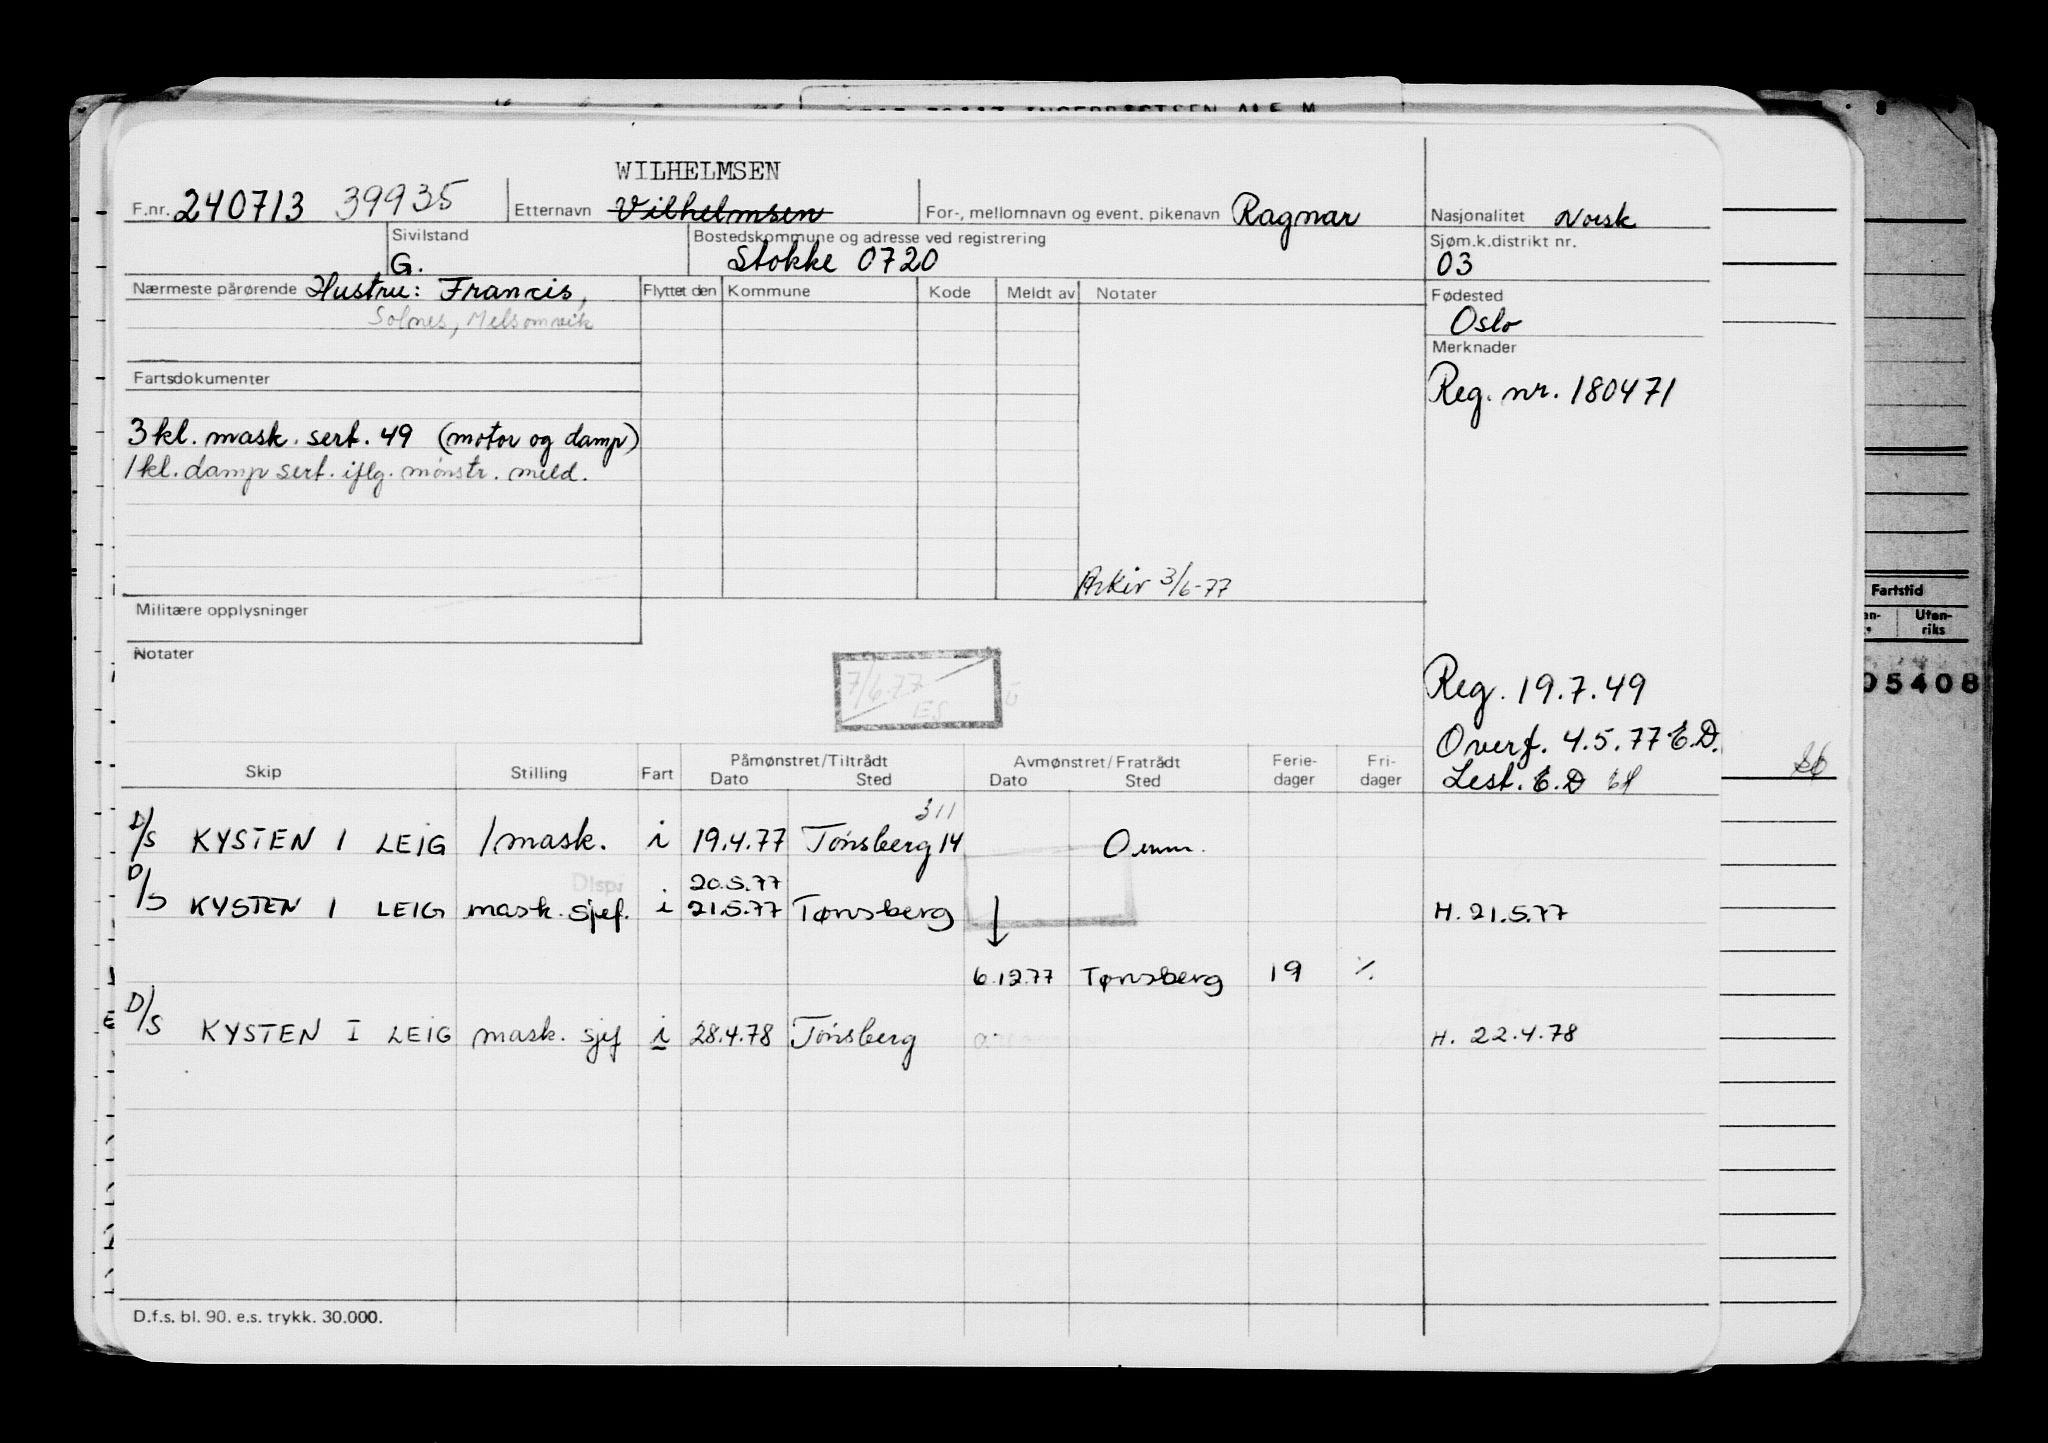 WILHELMSEN
F.nr. 240713 39935 Etternavn Vilhelmsen For-, mellomnavn og event. pikenavn Ragnar Nasjonalitet Norsk
Sivilstand G. Bostedskommune og adresse ved registrering Stokke 0720 Sjøm.k.distrikt nr. 03
Nærmeste pårørende Hustru: Francis, Flyttet den Kommune Kode Meldt av Notater Fødested
Solnes, Melsomvik Oslo
Merknader
Fartsdokumenter Reg. nr. 180471
3 kl. mask. sert. 49 (motor og damp)
1 kl. damp sert. iflg. mønstr. meld.
Arkiv 3/6-77
Militære opplysninger
Notater
7/6.77 ES
Reg. 19.7.49
Overf. 4.5.77 E.D.
Lest. E.D
Skip Stilling Fart Påmønstret/Tiltrådt Dato Sted Avmønstret/Fratrådt Dato Sted Ferie-dager Fri-dager
311
D/S KYSTEN I LEIG 1 mask. i 19.4.77 Tönsberg 14 Omm.
Disp. 20.5.77
D/S KYSTEN I LEIG mask. sjef. i 21.5.77 Tønsberg H. 21.5.77
6.12.77 Tønsberg 19 ./.
D/S KYSTEN I LEIG mask. sjef i 28.4.78 Tönsberg H. 22.4.78
D.f.s. bl. 90. e.s. trykk. 30.000.
Fartstid
Uten-
riks
05408